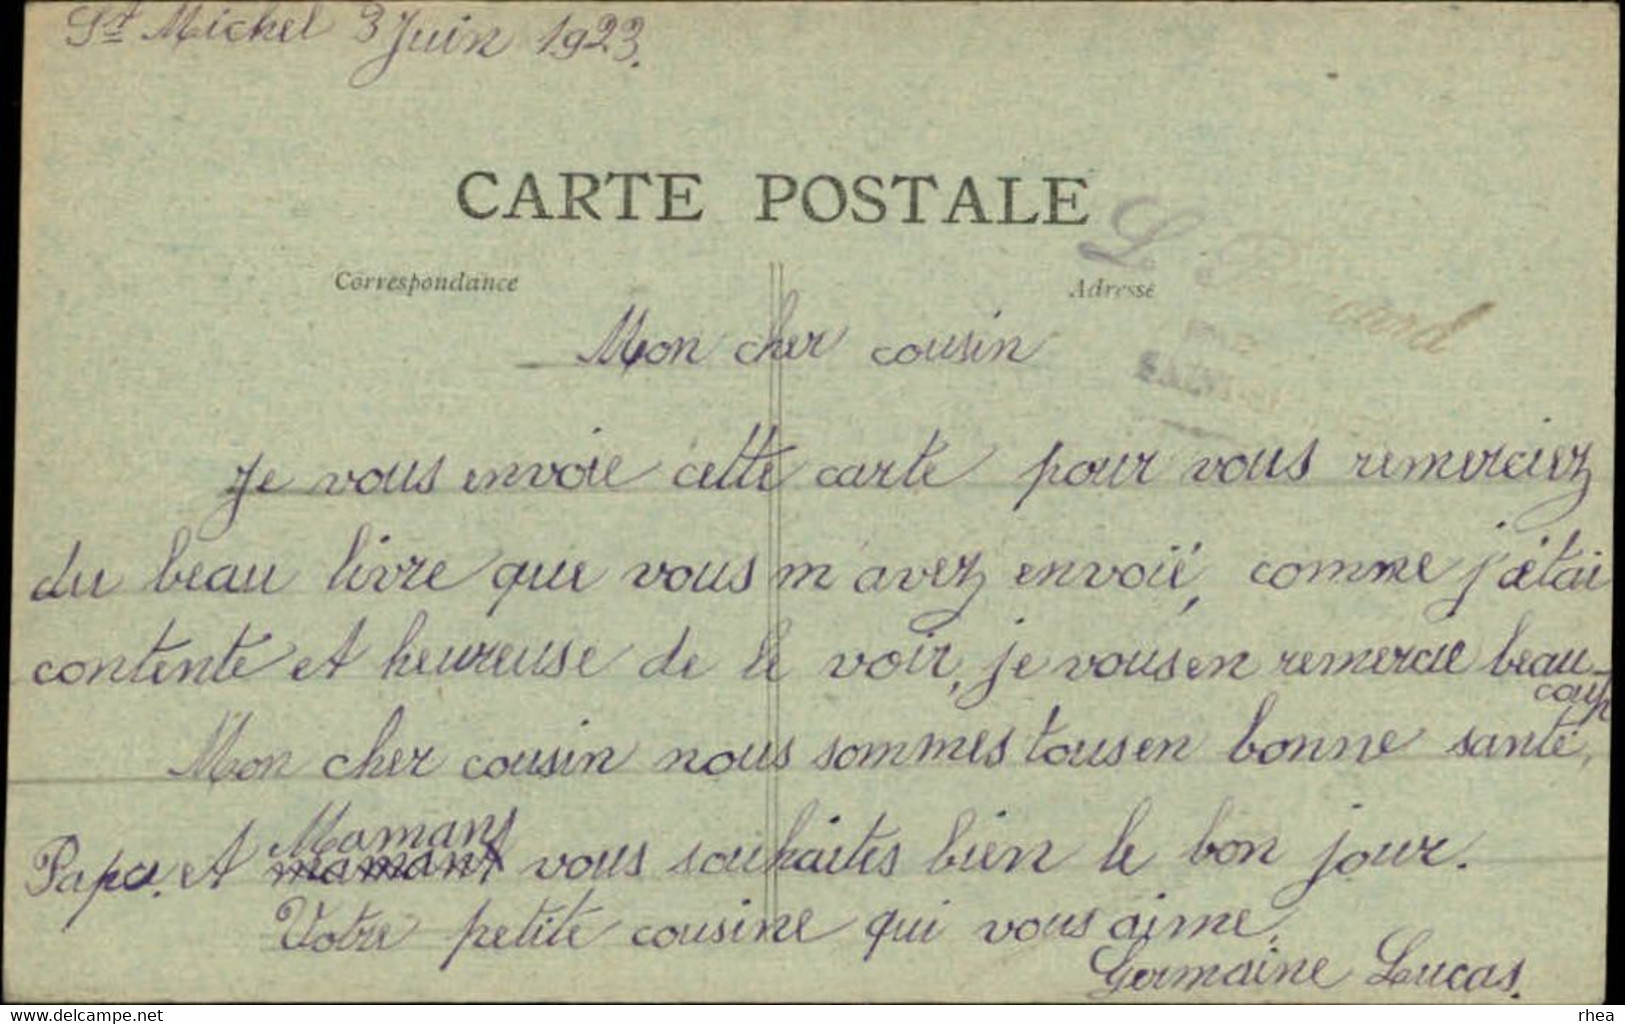 St Michel 3 Juin 1923.
CARTE POSTALE
Correspondance
Adresse
Mon cher cousin
Je vous envoie cette carte pour vous remerciez
du beau livre que vous m'avez envoié, comme j'étai
contente et heureuse de le voir, je vous en remercie beau-
coup
Mon cher cousin nous sommes tous en bonne santé,
Mamant
Papa. et mamant vous souhaites bien le bon jour.
Votre petite cousine qui vous aime.
Germaine Lucas.
© delcampe.net
rhea